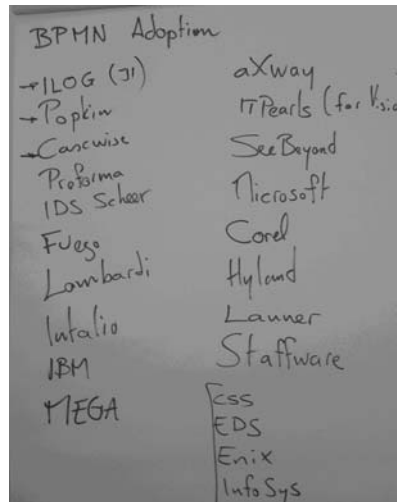 BPMN Adoption
→ILOG (J1)
→Popkin
→Casewise
Proforma
IDS Scheer
Fuego
Lombardi
Intalio
IBM
MEGA
aXway
ITPearls (for Visio
SeeBeyond
Microsoft
Corel
Hyland
Lanner
Staffware
CSS
EDS
Enix
InfoSys